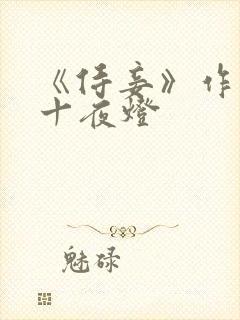 《侍妾》作
十夜燈
魅碌